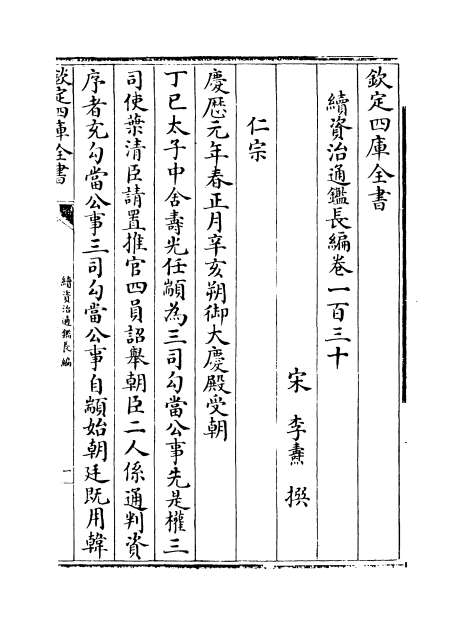 欽定四庫全書
續資治通鑑長編卷一百三十
宋 李燾 撰
仁宗
慶厯元年春正月辛亥朔御大慶殿受朝
丁巳太子中舍壽光任顓為三司勾當公事先是權三
司使葉清臣請置推官四員詔舉朝臣二人係通判資
序者充勾當公事三司勾當公事自顓始朝廷既用韓
欽定四庫全書
續資治通鑑長編
一